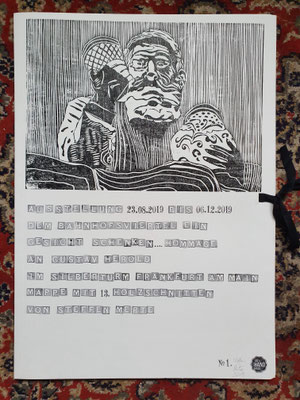 AUSSTELLUNG 23.08.2019 BIS 06.12.2019
DEM BAHNHOFSVIERTEL EIN
GESICHT SCHENKEN... HOMMAGE
AN GUSTAV HEROLD
IM SILBERTURM FRANKFURT AM MAIN
MAPPE MIT 13. HOLZSCHNITTEN
VON STEFFEN
№1.